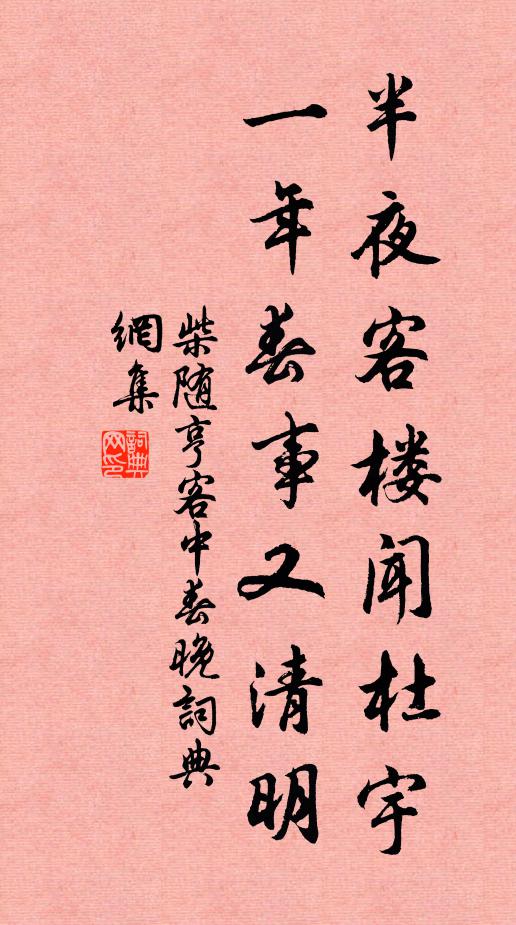 半夜客楼闻杜宇
一年春事又清明
柴随亨客中春晚词典
網集
詞典网印